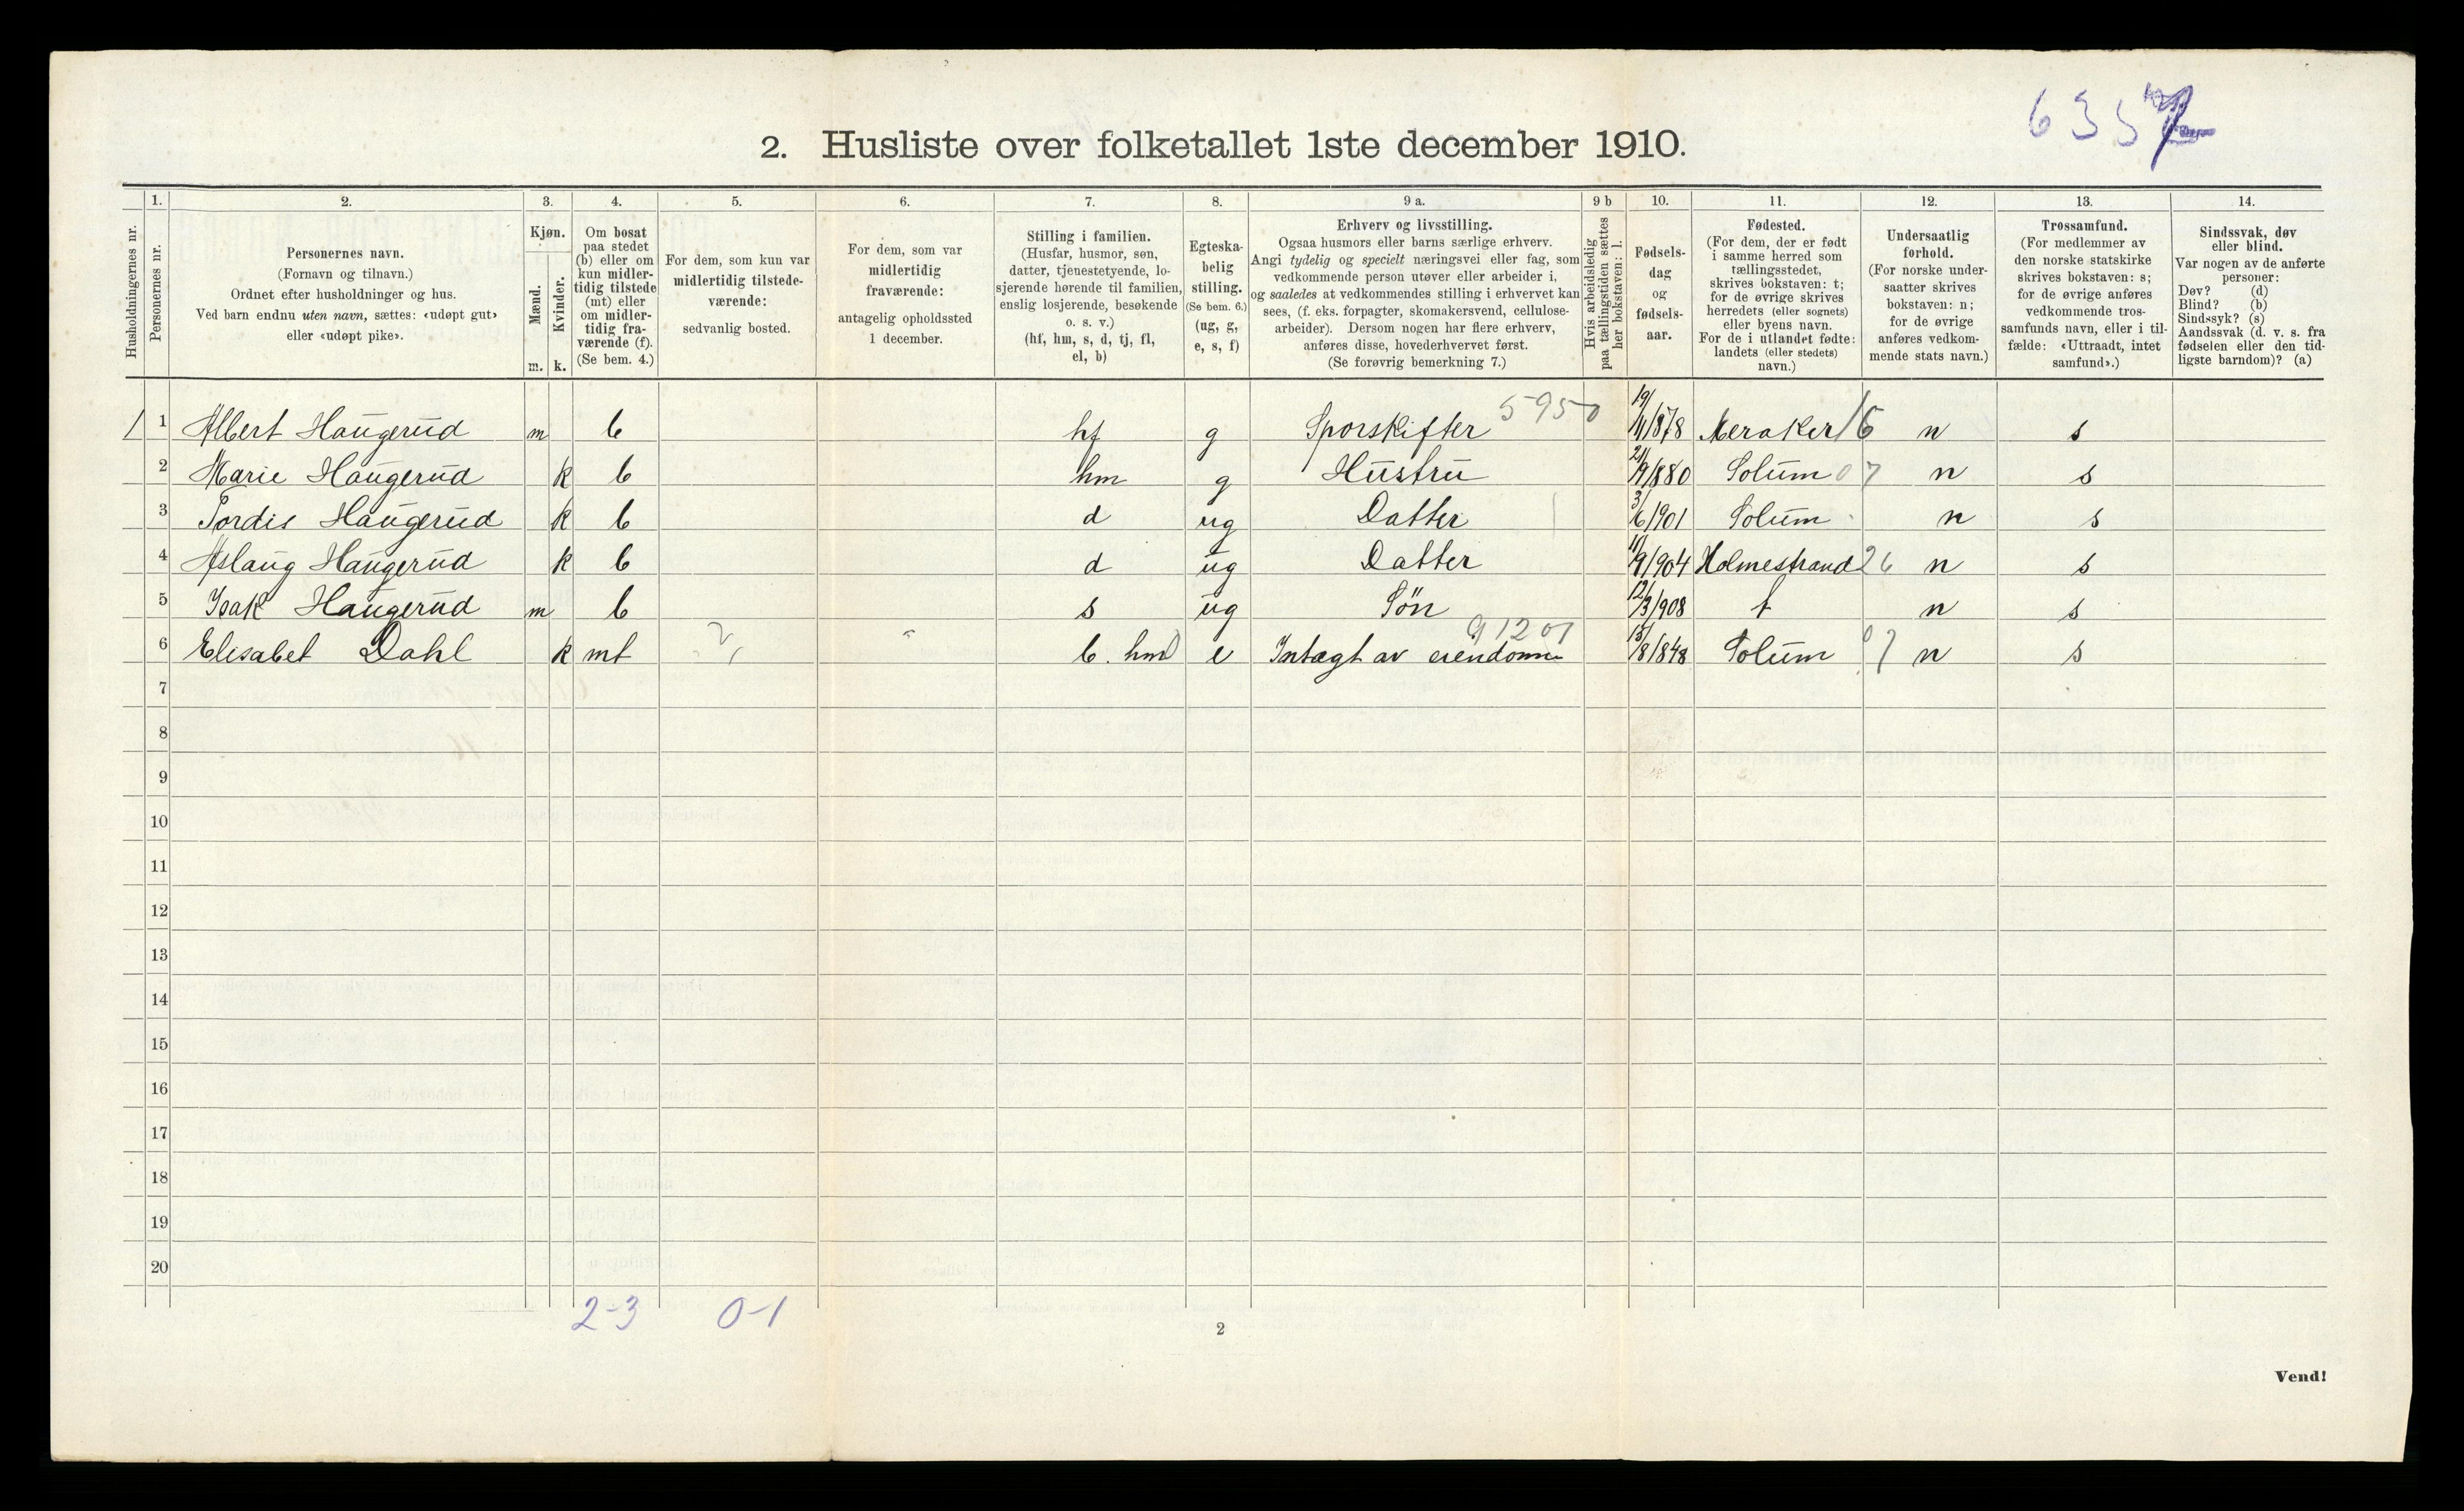 635
2. Husliste over folketallet 1ste december 1910.
Husholdningernes nr.
1.
Personernes nr.
2.
Personernes navn.
(Fornavn og tilnavn.)
Ordnet efter husholdninger og hus.
Ved barn endnu uten navn, sættes: «udøpt gut»
eller «udøpt pike».
3.
Kjøn.
Mænd.
Kvinder.
m. k.
4.
Om bosat
paa stedet
(b) eller om
kun midler-
tidig tilstede
(mt) eller
om midler-
tidig fra-
værende (f).
(Se bem. 4.)
5.
For dem, som kun var
midlertidig tilstede-
værende:
sedvanlig bosted.
6.
For dem, som var
midlertidig
fraværende:
antagelig opholdssted
1 december.
7.
Stilling i familien.
(Husfar, husmor, søn,
datter, tjenestetyende, lo-
sjerende hørende til familien,
enslig losjerende, besøkende
o. s. v.)
(hf, hm, s, d, tj, fl,
el, b)
8.
Egteska-
belig
stilling.
(Se bem. 6.)
(ug, g,
e, s, f)
9 a.
Erhverv og livsstilling.
Ogsaa husmors eller barns særlige erhverv.
Angi tydelig og specielt næringsvei eller fag, som
vedkommende person utøver eller arbeider i,
og saaledes at vedkommendes stilling i erhvervet kan
sees, (f. eks. forpagter, skomakersvend, cellulose-
arbeider). Dersom nogen har flere erhverv,
anføres disse, hovederhvervet først.
(Se forøvrig bemerkning 7.)
9 b
Hvis arbeidsledig
paa tællingstiden sættes
her bokstaven: l.
10.
Fødsels-
dag
og
fødsels-
aar.
11.
Fødested.
(For dem, der er født
i samme herred som
tællingsstedet,
skrives bokstaven: t;
for de øvrige skrives
herredets (eller sognets)
eller byens navn.
For de i utlandet fødte:
landets (eller stedets)
navn.)
12.
Undersaatlig
forhold.
(For norske under-
saatter skrives
bokstaven: n;
for de øvrige
anføres vedkom-
mende stats navn.)
13.
Trossamfund.
(For medlemmer av
den norske statskirke
skrives bokstaven: s;
for de øvrige anføres
vedkommende tros-
samfunds navn, eller i til-
fælde: «Uttraadt, intet
samfund».)
14.
Sindssvak, døv
eller blind.
Var nogen av de anførte
personer:
Døv? (d)
Blind? (b)
Sindssyk? (s)
Aandssvak (d. v. s. fra
fødselen eller den tid-
ligste barndom)? (a)
1 1 Albert Haugerud m b hf g Sporskifter 5950 19/11/878 Meraker 16 n s
2 Marie Haugerud k b hm g Hustru 21/9/880 Solum 07 n s
3 Tordis Haugerud k b d ug Datter 3/6/901 Solum n s
4 Aslaug Haugerud k b d ug Datter 11/9/904 Holmestrand 26 n s
5 Isak Haugerud m b s ug Søn 12/3/908 t n s
6 Elisabet Dahl k mt b. hm e Intægt av eiendomme 91201 15/8/848 Solum 07 n s
7
8
9
10
11
12
13
14
15
16
17
18
19
20
2-3 0-1
2
Vend!